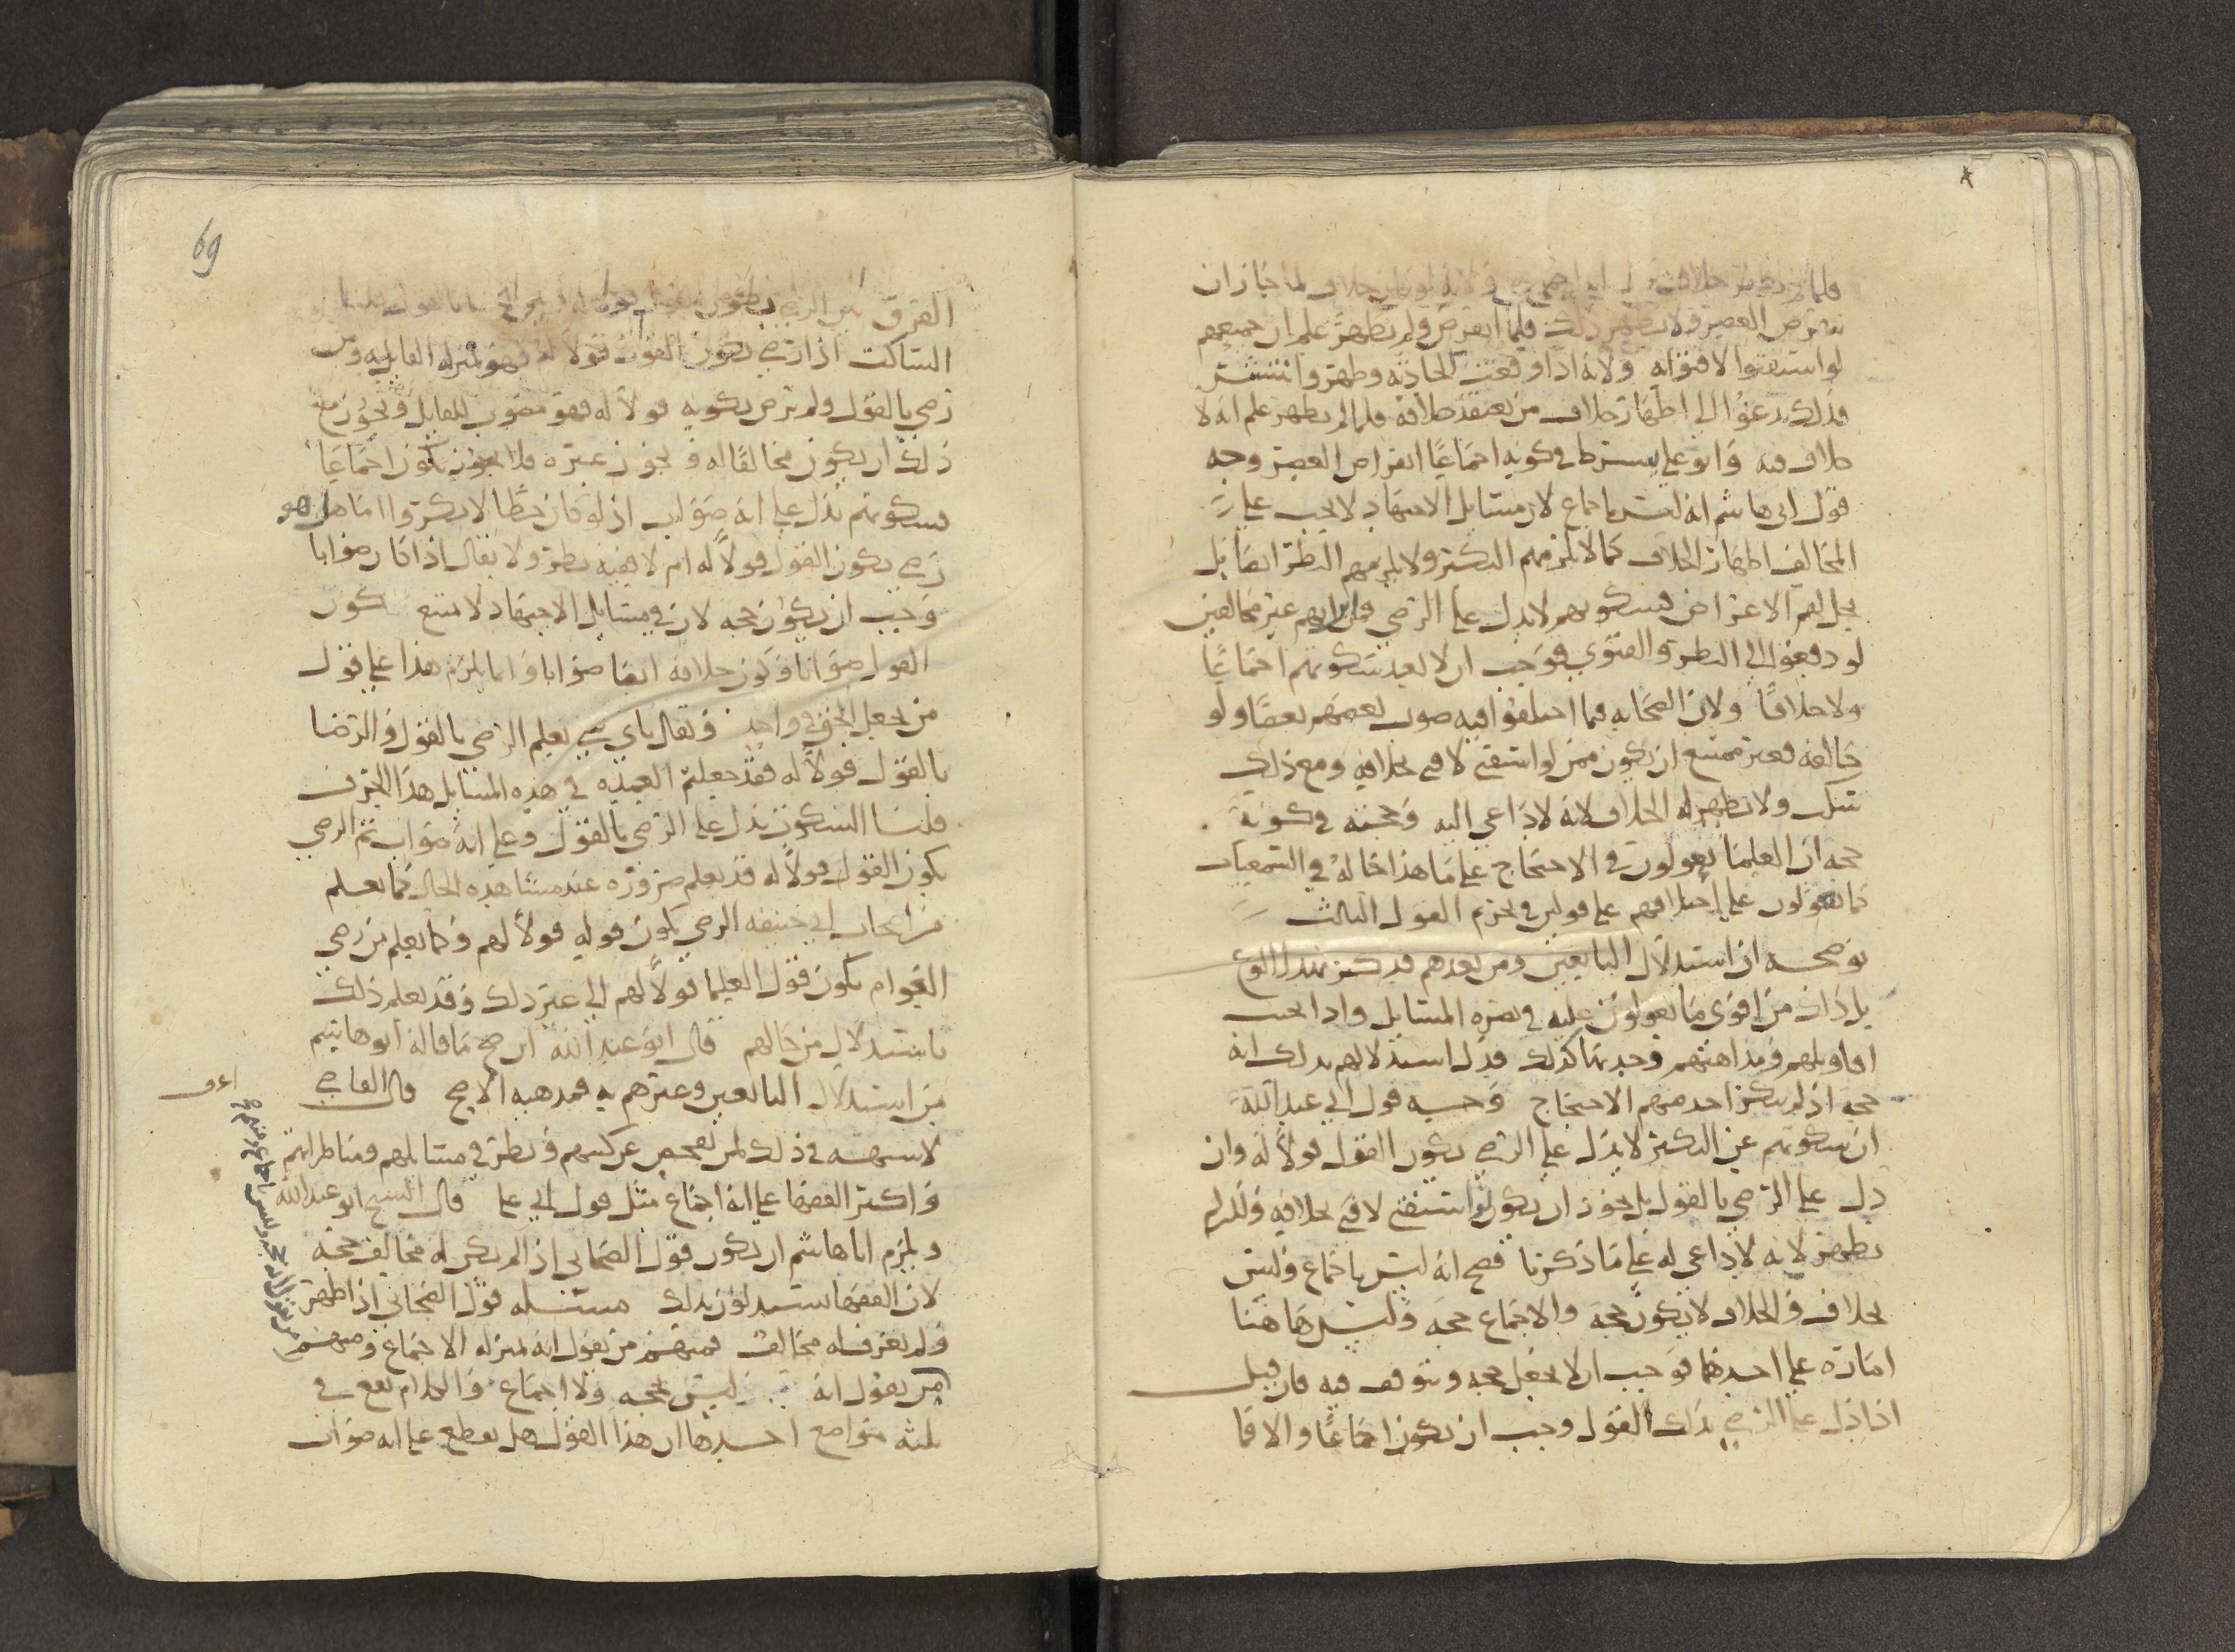 فلما لم يظهر خلافه لما جاز ان
ينقرض العصر ولا يظهر ذلك فلما انقرض ولم يظهر علم ان جميعهم
لو استفتوا لافتوا به ولانه اذا وقعت الحادثه وظهر وانتشر
فذلك يدعوا الى اظهار خلاف من يعتقد خلافه فلما لم يظهر علم انه لا
خلاف فيه وابو علي يشترط في كونه اجماعًا انقراض العصر وجه
قول ابي هاشم انه ليس باجماع لان مسايل الاجتهاد لا يجب على
المخالف اظهار الخلاف كما لا يلزمهم النكير ولا يلزمهم النظر ايضا بل
يحل لهم الاعراض فسكوتهم لا يدل على الرضى وانهم غير مخالفين
لو دفعوا الى النظر والفتوى فوجب ان لا يعد سكوتهم اجماعًا
ولا خلافًا ولان الصحابه فيما اختلفوا فيه صوب بعضهم بعضًا ولو
خالفه فغير ممتنع ان يكون ممن لو استفتي لافتى بخلافه ومع ذلك
سكت ولا يظهر له الخلاف لانه لا داعي اليه وحجته في كونه
حجه ان العلما يعولون في الاحتجاج على ما هذا حاله في السمعيات
كما يعولون على اختلافهم على قولين في تحريم القول الثالث
يوضحه ان استدلال التابعين ومن بعدهم قد كثر بهذا النوع
بل ذلك من اقوى ما يعولون عليه في نصره المسايل واذا
اقاويلهم ومذاهبهم وجدتها كذلك فدل استدلالهم بذلك انه
حجه اذ لم ينكر احد منهم الاحتجاج وحجه قول ابي عبد الله
ان سكوتهم عن النكير لا يدل على الرضى بكون القول قولًا له وان
دل على الرضى بالقول بل يجوز ان يكون لو استفتي لافتى بخلافه ولم
يظهر لانه لا داعي له على ما ذكرنا فصح انه ليس باجماع وليس
بخلاف والخلاف لا يكون حجه والاجماع حجه وليس هاهنا
اماره على احدهما فوجب ان لا يجعل حجه ويتوقف فيه فان قيل
اذا دل على الرضى بذلك القول وجب ان يكون اجماعًا والا فما
69
الفرق بين الرضى
الساكت اذا رضي بكون القول قولًا له فهو بمنزله القايل به ومن
رضي بالقول ولم يرض بكونه قولًا له فهو مصوب للقايل ويجوز مع
ذلك ان يكون مخالفًا له ويجوز غيره فلا يجوز يكون اجماعًا
فسكوتهم يدل على انه صواب اذ لو كان خطًا لانكروا اما هل هو
رضي بكون القول قولًا له ام لا ففيه نظر ولا يقال اذا كان صوابا
وجب ان يكون حجه لان في مسايل الاجتهاد لا يمتنع كون
القول صوابا وكون خلافه ايضا صوابا وانما يلزم هذا على قول
من يجعل الحق في واحد ويقال باي شي يعلم الرضى بالقول والرضا
بالقول قولًا له فقد جعلتم العمده في هذه المسايل هذا الحرف
قلنا السكوت يدل على الرضى بالقول وعلى انه صواب ثم الرضى
بكون القول قولًا له قد يعلم ضروره عند مشاهده الحال كما يعلم
من اصحاب ابي حنيفه الرضى بكون قوله قولًا لهم وكما يعلم من رضى
العوام بكون قول العلما قولًا لهم الى غير ذلك وقد يعلم ذلك
باستدلال من حالهم قال ابو عبد الله ان صح ما قاله ابو هاشم
من استدلال التابعين وغيرهم به فمذهبه الاصح قال القاضي
لا شبهه في ذلك لمن تفحص عن كتبهم ونظر في مسايلهم ومناظراتهم
واكثر الفقها على انه اجماع مثل قول ابي علي قال الشيخ ابو عبد الله
ويلزم ابا هاشم ان يكون قول الصحابي اذا لم يكن له مخالف حجه
لان الفقها يستدلون بذلك مسئله قول الصحابي اذا ظهر
ولم يعرف له مخالف فمنهم من يقول انه بمنزله الاجماع ومنهم
من يقول انه حجه وليس باجماع ومنهم
من يقول انه ليس بحجه ولا اجماع والكلام يقع في
ثلثه مواضع احدها ان هذا القول هل يقطع على انه صواب